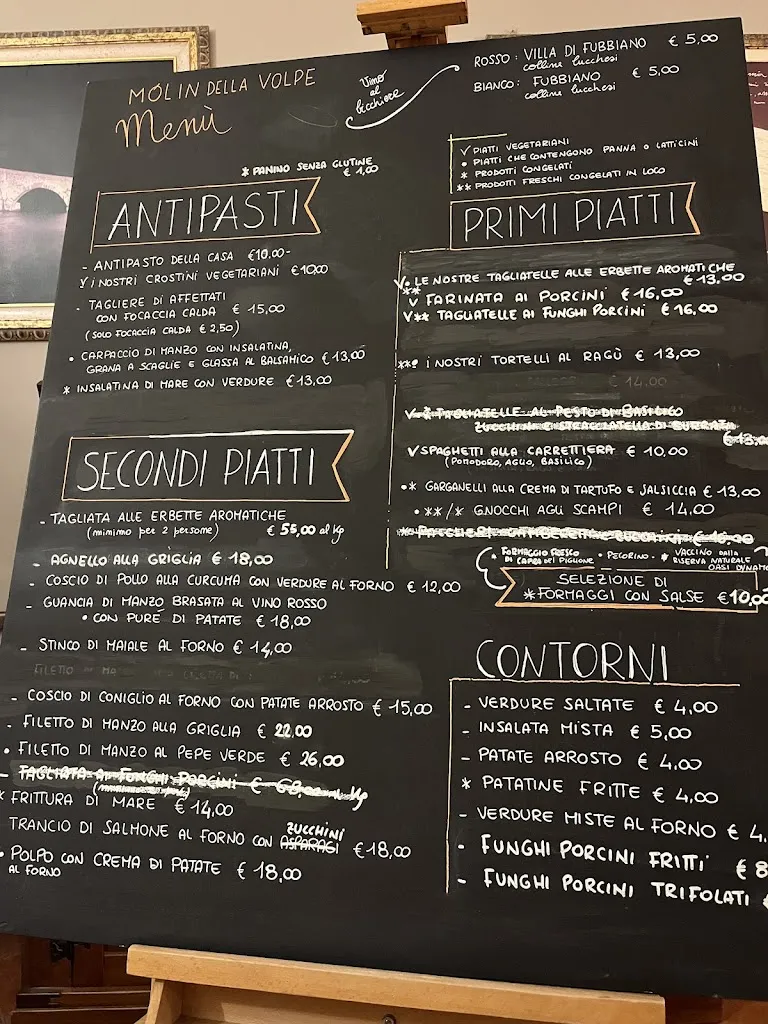 MOLIN DELLA VOLPE
Menù
Vino
al
bicchiere
ROSSO: VILLA DI FUBBIANO € 5,00
colline lucchesi
BIANCO: FUBBIANO € 5,00
colline lucchesi
√ PIATTI VEGETARIANI
• PIATTI CHE CONTENGONO PANNA O LATTICINI
* PRODOTTI CONGELATI
** PRODOTTI FRESCHI CONGELATI IN LOCO
* PANINO SENZA GLUTINE
€ 1,00
ANTIPASTI
- ANTIPASTO DELLA CASA €10,00-
√ I NOSTRI CROSTINI VEGETARIANI €10,00
- TAGLIERE DI AFFETTATI
CON FOCACCIA CALDA € 15,00
(SOLO FOCACCIA CALDA € 2,50)
• CARPACCIO DI MANZO CON INSALATINA,
GRANA A SCAGLIE E GLASSA AL BALSAMICO €13,00
* INSALATINA DI MARE CON VERDURE €13,00
SECONDI PIATTI
- TAGLIATA ALLE ERBETTE AROMATICHE
(minimo per 2 persone) € 55,00 al Kg
- AGNELLO ALLA GRIGLIA € 18,00
- COSCIO DI POLLO ALLA CURCUMA CON VERDURE AL FORNO € 12,00
- GUANCIA DI MANZO BRASATA AL VINO ROSSO
• CON PURÈ DI PATATE € 18,00
- STINCO DI MAIALE AL FORNO € 14,00
- COSCIO DI CONIGLIO AL FORNO CON PATATE ARROSTO € 15,00
- FILETTO DI MANZO ALLA GRIGLIA € 22,00
• FILETTO DI MANZO AL PEPE VERDE € 26,00
- TAGLIATA AI FUNGHI PORCINI €
* FRITTURA DI MARE € 14,00
TRANCIO DI SALMONE AL FORNO CON ASPARAGI ZUCCHINI €18,00
• POLPO CON CREMA DI PATATE € 18,00
AL FORNO
PRIMI PIATTI
√• LE NOSTRE TAGLIATELLE ALLE ERBETTE AROMATICHE
** € 13,00
√ FARINATA AI PORCINI € 16,00
√** TAGLIATELLE AI FUNGHI PORCINI € 16,00
**• I NOSTRI TORTELLI AL RAGÙ € 13,00
€ 14,00
TAGLIATELLE AL PESTO DI BASILICO
ZUCCHINI E STRACCIATELLA DI BURRATA
√ SPAGHETTI ALLA CARRETTIERA € 10,00
(POMODORO, AGLIO, BASILICO)
•* GARGANELLI ALLA CREMA DI TARTUFO E SALSICCIA € 13,00
• **/* GNOCCHI AGLI SCAMPI € 14,00
• FORMAGGIO FRESCO
DI CAPRA DEL PIGLIONE
• PECORINO
- * VACCINO DALLA
RISERVA NATURALE
OASI DYNAMO
SELEZIONE DI
* FORMAGGI CON SALSE €10,00
CONTORNI
- VERDURE SALTATE € 4,00
- INSALATA MISTA € 5,00
- PATATE ARROSTO € 4,00
* PATATINE FRITTE € 4,00
- VERDURE MISTE AL FORNO € 4,
- FUNGHI PORCINI FRITTI € 8
- FUNGHI PORCINI TRIFOLATI €